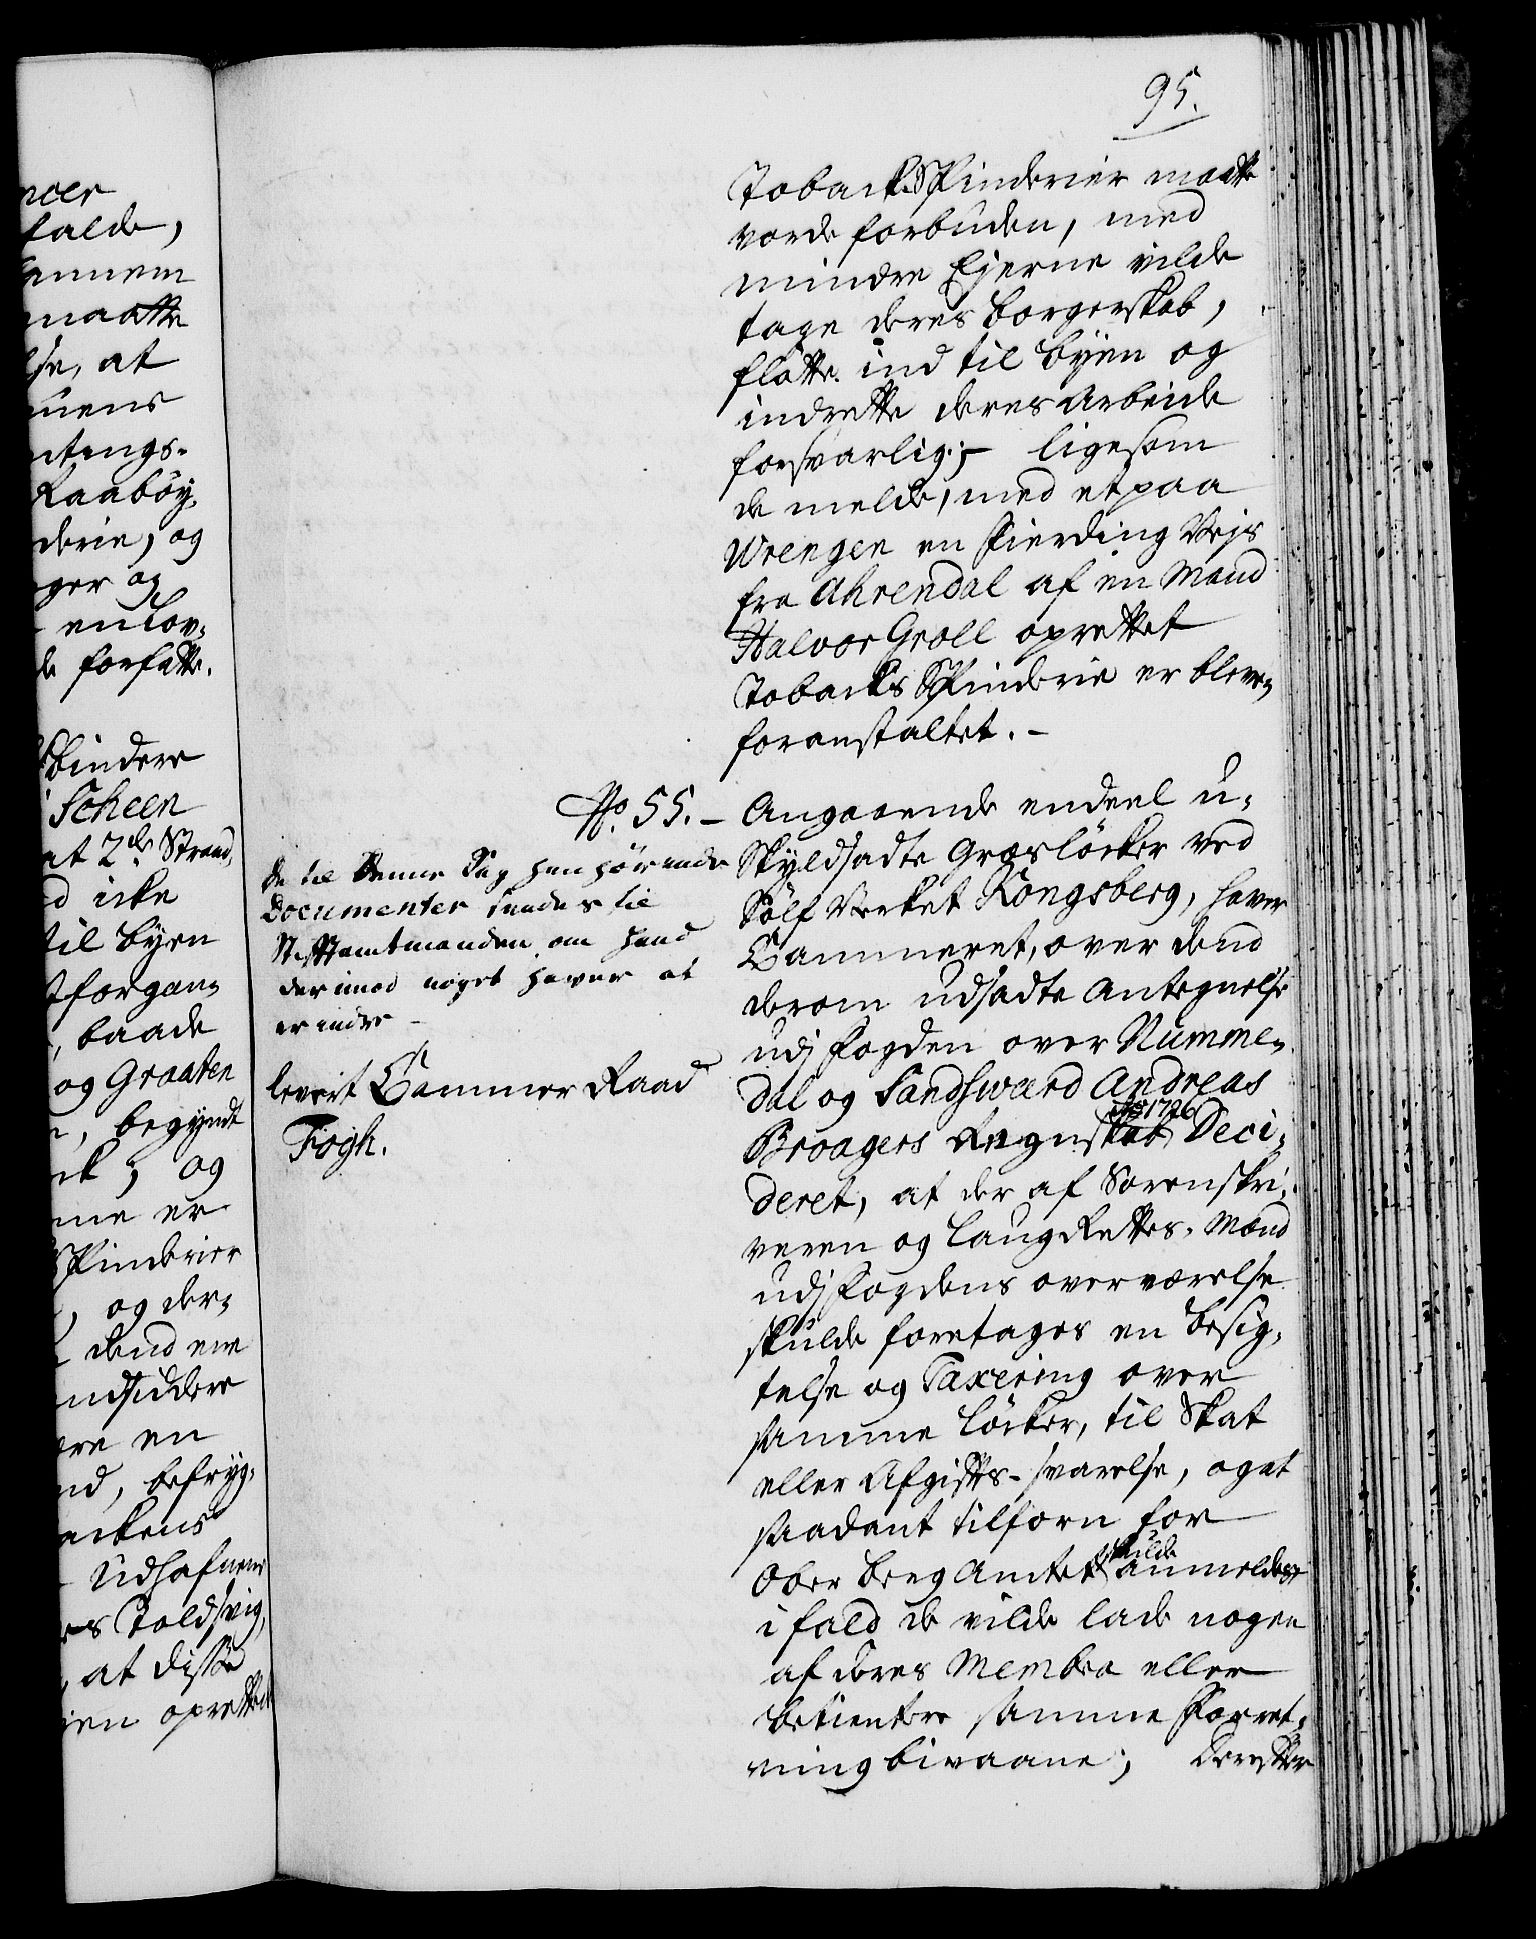 95.
Tobacks Spinderier maatte
vorde forbuden, med
mindre Ejerne vilde
tage deres borgerskab,
flötte ind til byen og
indrette deres Arbeide
forsvarlig; ligesom
de melde, med et paa
Wrengen en Fierding Vejs
fra Ahrendal af en Mand
Halvor Groll oprettet
Tobacks Spinderie er bleven
foranstaltet. -
No. 55. - Angaaende endeel u-
skyldsadte Græslöcker ved
Sölf Verket Kongsberg, haver
Cammeret, over dend
derom udsadte Antegnelse
udj Fogden over Numme-
dal og Sandsværd Andreas
Broagers Regnskab
Ao 1726
Deci-
deret, at der af Sorenskri-
veren og Laug Rettes-Mænd
udj Fogdens overværelse
skulde foretages en besig-
telse og Taxering over
samme Löcker, til Skat
eller Afgifts-svarelse, og at
saadant tilforn for
Ober berg Amtet skulde anmeldes,
ifald de vilde lade nogen
af deres Membra eller
betientere samme Forret-
ning bivaane; derefter
de til denne Sag henhörende
Documenter sendes til
Stiftamtmanden om hand
derimod noget haver at
erindre -
levert Cammer Raad
Fogh.
falde,
maatte
at
og
en Lov-
forfatte.
Spindere
Scheen
at 2de Strand
icke
til byen
forgan-
baade
og Graaten
begyndt
og
er
Spinderier
og der-
dend ene
en
befryg-
Udhafnene
Toldsvig,
at disse
oprettede